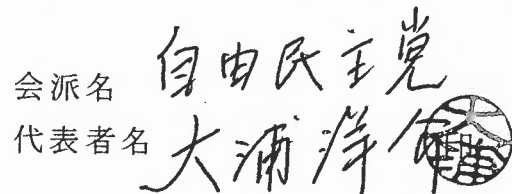 会派名 自由民主党
代表者名 大浦洋介